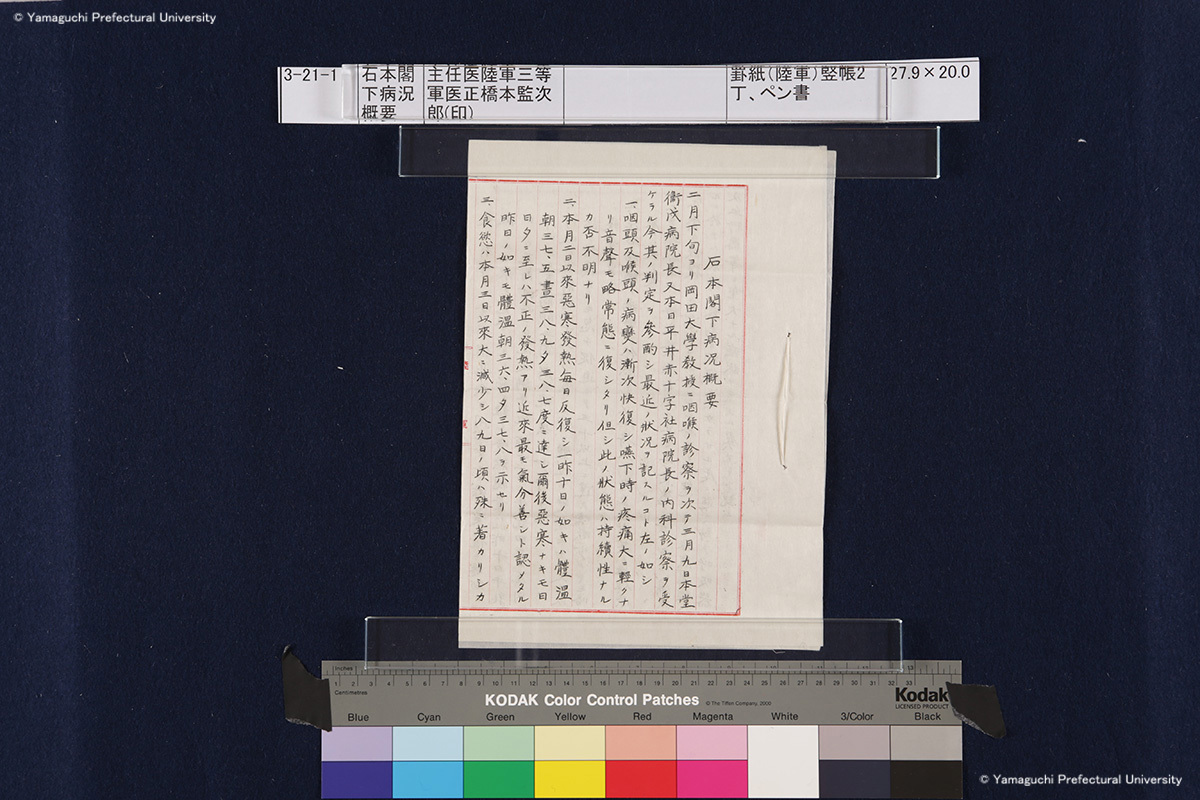 © Yamaguchi Prefectural University
3-21-1
石本閣
下病況
概要
主任医陸軍三等
軍医正橋本監次
郎(印)
罫紙(陸軍)竪帳2
丁、ペン書
27.9×20.0
石本閣下病况概要
二月下旬ヨリ岡田大學教授ニ咽喉ノ診察ヲ次テ三月九日本堂
衛戍病院長又本日平井赤十字社病院長ノ内科診察ヲ受
ケラル今其ノ判定ヲ參酌シ最近ノ狀況ヲ記スルコト左ノ如シ
一、咽頭及喉頭ノ病變ハ漸次快復シ嚥下時ノ疼痛大ニ輕クナ
リ音聲モ略常態ニ復シタリ但シ此ノ狀態ハ持續性ナル
カ否不明ナリ
二、本月二日以來惡寒發熱每日反復シ一昨十日ノ如キハ體温
朝三七、五晝三八、九夕三八、七度ニ達シ爾後惡寒ナキモ日
日夕ニ至レハ不正ノ發熱アリ近來最モ氣分善シト認メタル
昨日ノ如キモ體温朝三六、四夕三七、八ヲ示セリ
三、食慾ハ本月三日以來大ニ減少シ八九日ノ頃ハ殊ニ著カリシカ
Inches
Centimetres
1 2 3 4 5 6 7 8 9 10 11 12 13 14 15 16 17 18 19 20 21 22 23 24 25 26 27 28 29 30 31 32 33
KODAK Color Control Patches
© The Tiffen Company, 2000
Kodak
LICENSED PRODUCT
Blue Cyan Green Yellow Red Magenta White 3/Color Black
© Yamaguchi Prefectural University